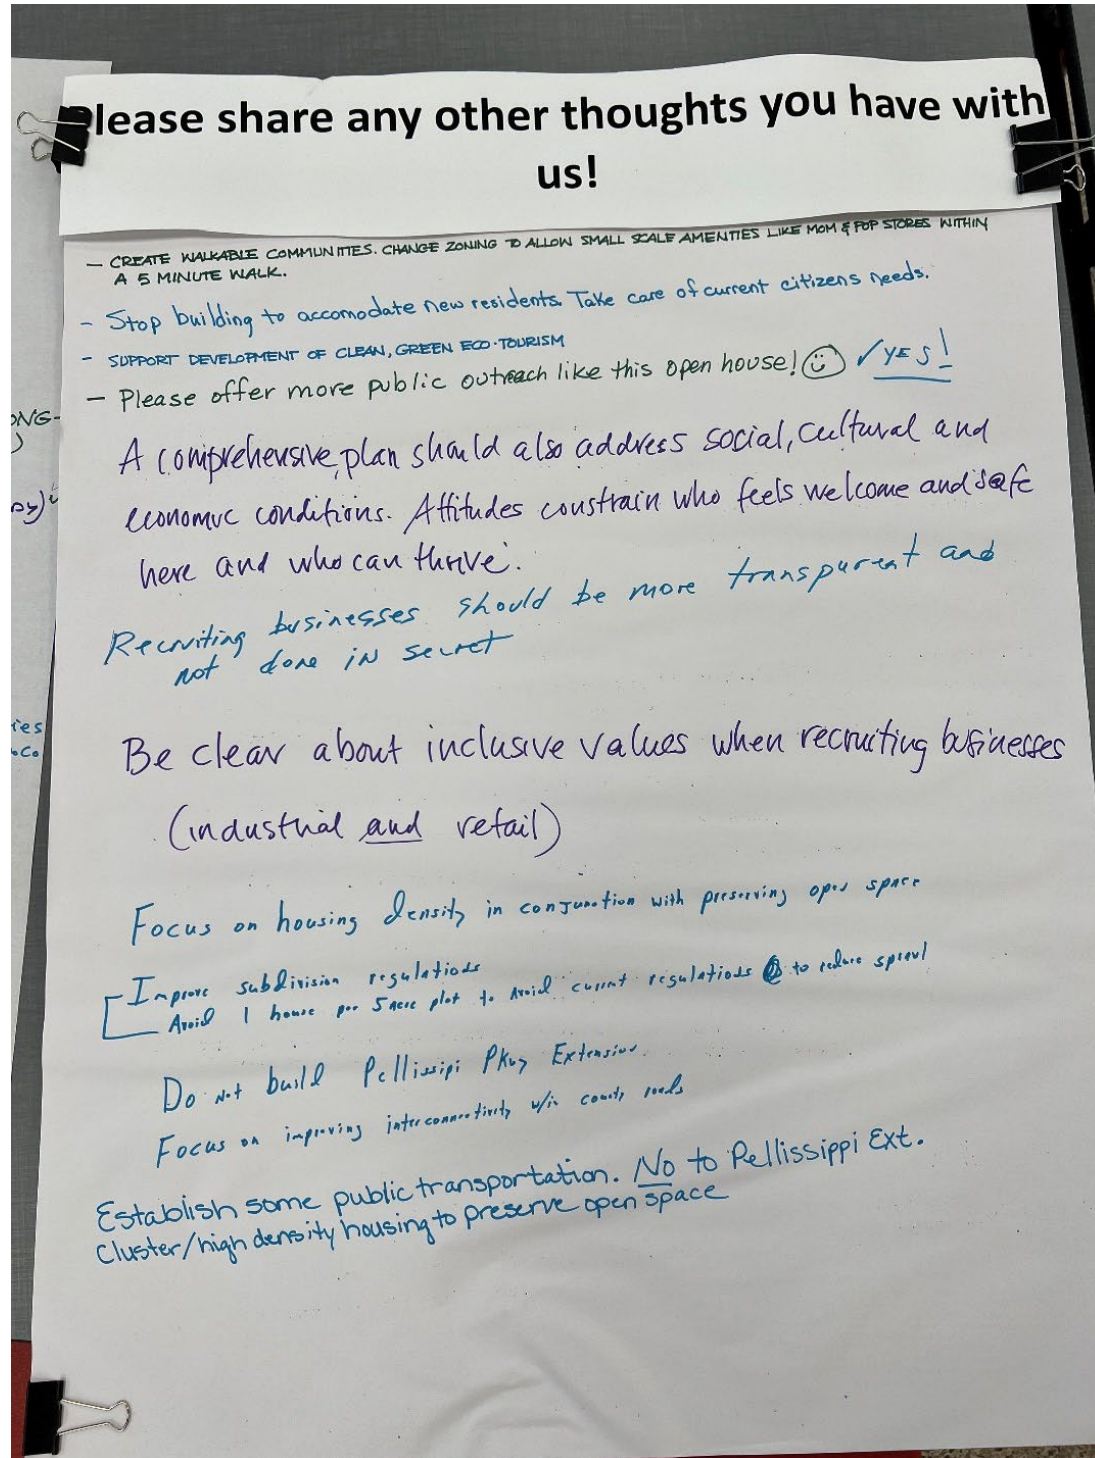 Please share any other thoughts you have with
us!
- CREATE WALKABLE COMMUNITIES. CHANGE ZONING TO ALLOW SMALL SCALE AMENITIES LIKE MOM & POP STORES WITHIN
A 5 MINUTE WALK.
- Stop building to accomodate new residents. Take care of current citizens needs.
- SUPPORT DEVELOPMENT OF CLEAN, GREEN ECO-TOURISM
- Please offer more public outreach like this open house! ☺ ✓YES!
A comprehensive plan should also address social, cultural and
economic conditions. Attitudes constrain who feels welcome and safe
here and who can thrive.
Recruiting businesses should be more transparent and
not done in secret
Be clear about inclusive values when recruiting businesses
(industrial and retail)
Focus on housing density in conjunction with preserving open space
Improve subdivision regulations
Avoid 1 house per 5 acre plot to avoid current regulations to reduce sprawl
Do not build Pellissipi Pkwy Extension.
Focus on improving interconnectivity w/in county roads
Establish some public transportation. No to Pellissippi Ext.
Cluster/high density housing to preserve open space
ONG-
)
ies
oCo